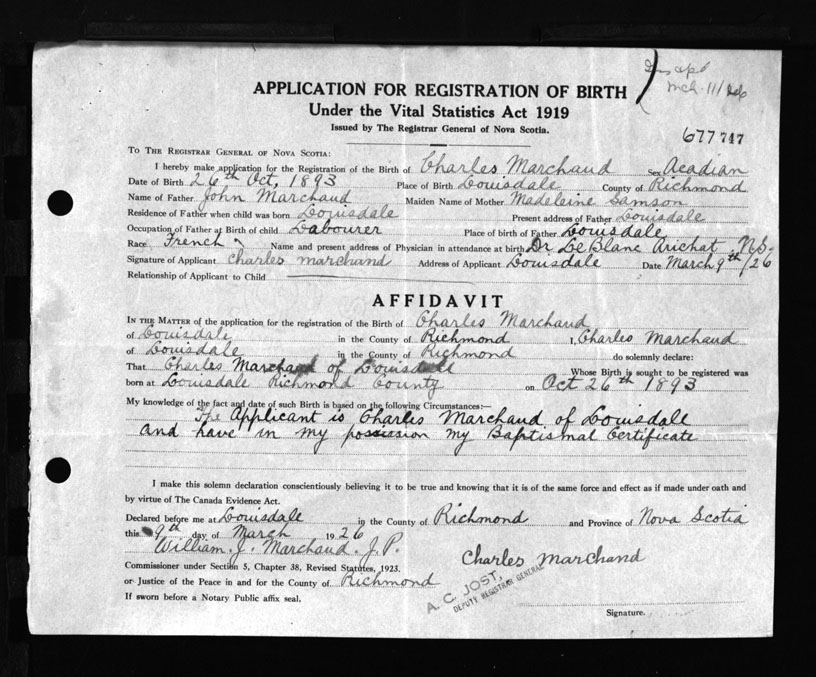 mch. 11/26
APPLICATION FOR REGISTRATION OF BIRTH
Under the Vital Statistics Act 1919
Issued by The Registrar General of Nova Scotia.
677747
TO THE REGISTRAR GENERAL OF NOVA SCOTIA:
I hereby make application for the Registration of the Birth of Charles Marchand Sex Acadian
Date of Birth 26th Oct, 1893 Place of Birth Louisdale County of Richmond
Name of Father John Marchand Maiden Name of Mother Madeleine Samson
Residence of Father when child was born Louisdale Present address of Father Louisdale
Occupation of Father at Birth of child Labourer Place of birth of Father Louisdale
Race French Name and present address of Physician in attendance at birth Dr LeBlanc Arichat N.S.
Signature of Applicant Charles Marchand Address of Applicant Louisdale Date March 9th /26
Relationship of Applicant to Child
AFFIDAVIT
IN THE MATTER of the application for the registration of the Birth of Charles Marchand
of Louisdale in the County of Richmond I, Charles Marchand
of Louisdale in the County of Richmond do solemnly declare:
That Charles Marchand of Louisdale Whose Birth is sought to be registered was
born at Louisdale Richmond County on Oct 26th 1893
My knowledge of the fact and date of such Birth is based on the following Circumstances:—
The Applicant is Charles Marchand of Louisdale
and have in my possission my Baptismal Certificate
I make this solemn declaration conscientiously believing it to be true and knowing that it is of the same force and effect as if made under oath and
by virtue of The Canada Evidence Act.
Declared before me at Louisdale in the County of Richmond and Province of Nova Scotia
this 9th day of March 1926
William. J. Marchand. J.P.
Charles Marchand
Commissioner under Section 5, Chapter 38, Revised Statutes, 1923.
or Justice of the Peace in and for the County of Richmond
A. C. JOST,
DEPUTY REGISTRAR GENERAL
If sworn before a Notary Public affix seal,
Signature.